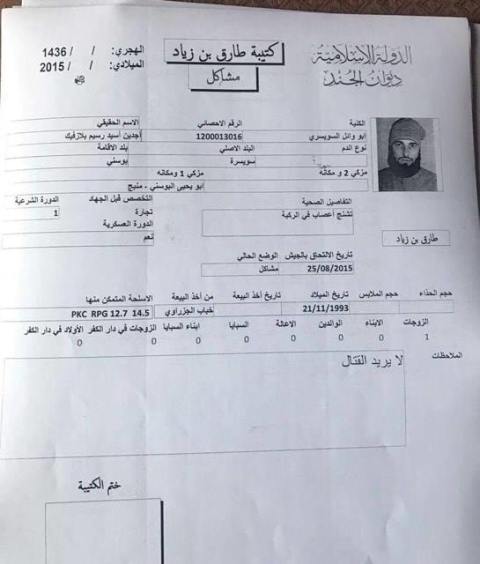 الدولة الإسلامية
ديوان الجند
كتيبة طارق بن زياد
مشاكل
الهجري: / / 1436
الميلادي: / / 2015
الكنية
الرقم الاحصائي
الاسم الحقيقي
ابو وائل السويسري
1200013016
أجدين أسيد رسيم بلازفيك
نوع الدم
البلد الاصلي
بلد الاقامة
سويسرة
بوسني
مزكي 2 و مكانه
مزكي 1 ومكانه
ابو يحيى البوسني - منبج
التفاصيل الصحية
التخصص قبل الجهاد
الدورة الشرعية
تشنج أعصاب في الركبة
تجارة
1
الدورة العسكرية
نعم
طارق بن زياد
تاريخ الالتحاق بالجيش
الوضع الحالي
25/08/2015
مشاكل
حجم الحذاء
حجم الملابس
تاريخ الميلاد
تاريخ أخذ البيعة
من أخذ البيعة
الاسلحة المتمكن منها
21/11/1993
خباب الجزراوي
PKC RPG 12.7 14.5
الزوجات
الابناء
الوالدين
الاعالة
السبايا
ابناء السبايا
الزوجات في دار الكفر
الأولاد في دار الكفر
1 0 0 0 0 0 0 0
الملاحظات
لا يريد القتال
ختم الكتيبة